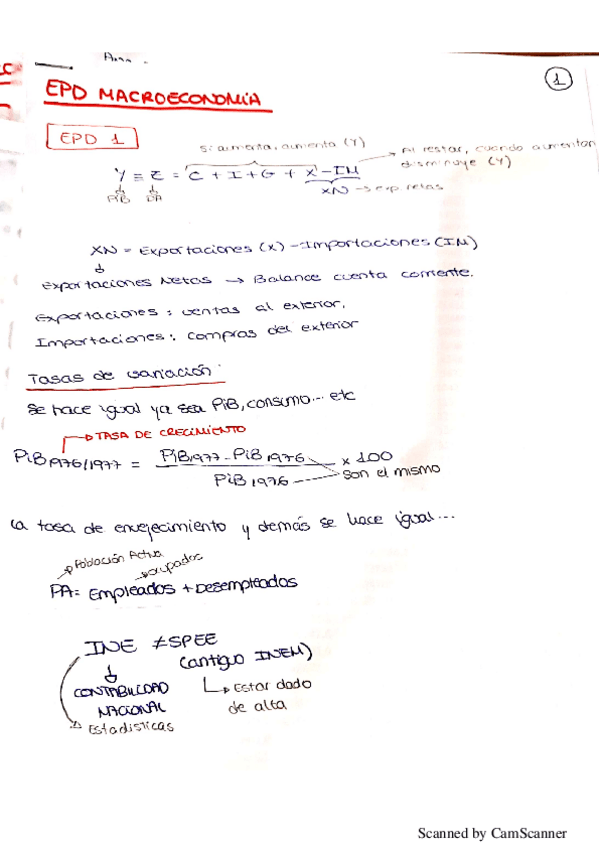 1
EPD MACROECONOMIA
EPD 1
Si aumenta, aumenta (Y)
Al restar, cuando aumentan
disminuye (Y)
Y ≡ Z = C + I + G + X - IM
PIB DA
XN → exp. netas
XN = Exportaciones (X) - Importaciones (IM)
Exportaciones Netas → Balance cuenta corriente.
Exportaciones: ventas al exterior.
Importaciones: compras del exterior
Tasas de variación:
se hace igual ya sea PiB, consumo... etc
TASA DE CRECIMIENTO
PiB 1976/1977 = PiB1977 - PiB 1976 x 100
PiB 1976 son el mismo
la tasa de envejecimiento y demás se hace igual...
Población Activa
ocupados
PA: Empleados + Desempleados
INE ≠ SPEE
(antiguo INEM)
CONTABILIDAD
NACIONAL
Estar dado
de alta
Estadisticas
Scanned by CamScanner